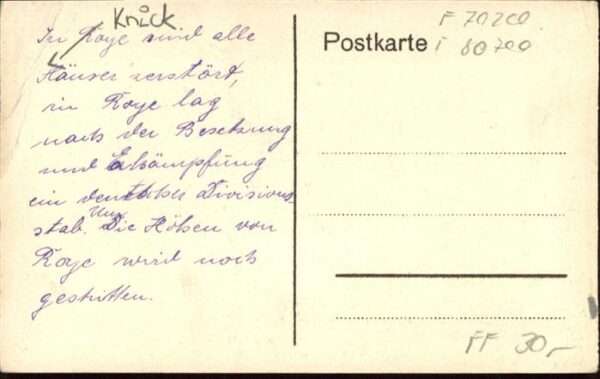 Knick
In Roye sind alle
Häuser zerstört,
in Roye lag
nach der Besetzung
und Erkämpfung
ein deutscher Divisions-
stab. Um Die Höhen von
Roye wird noch
gestritten.
Postkarte
F 70200
i 80700
FF 30,-